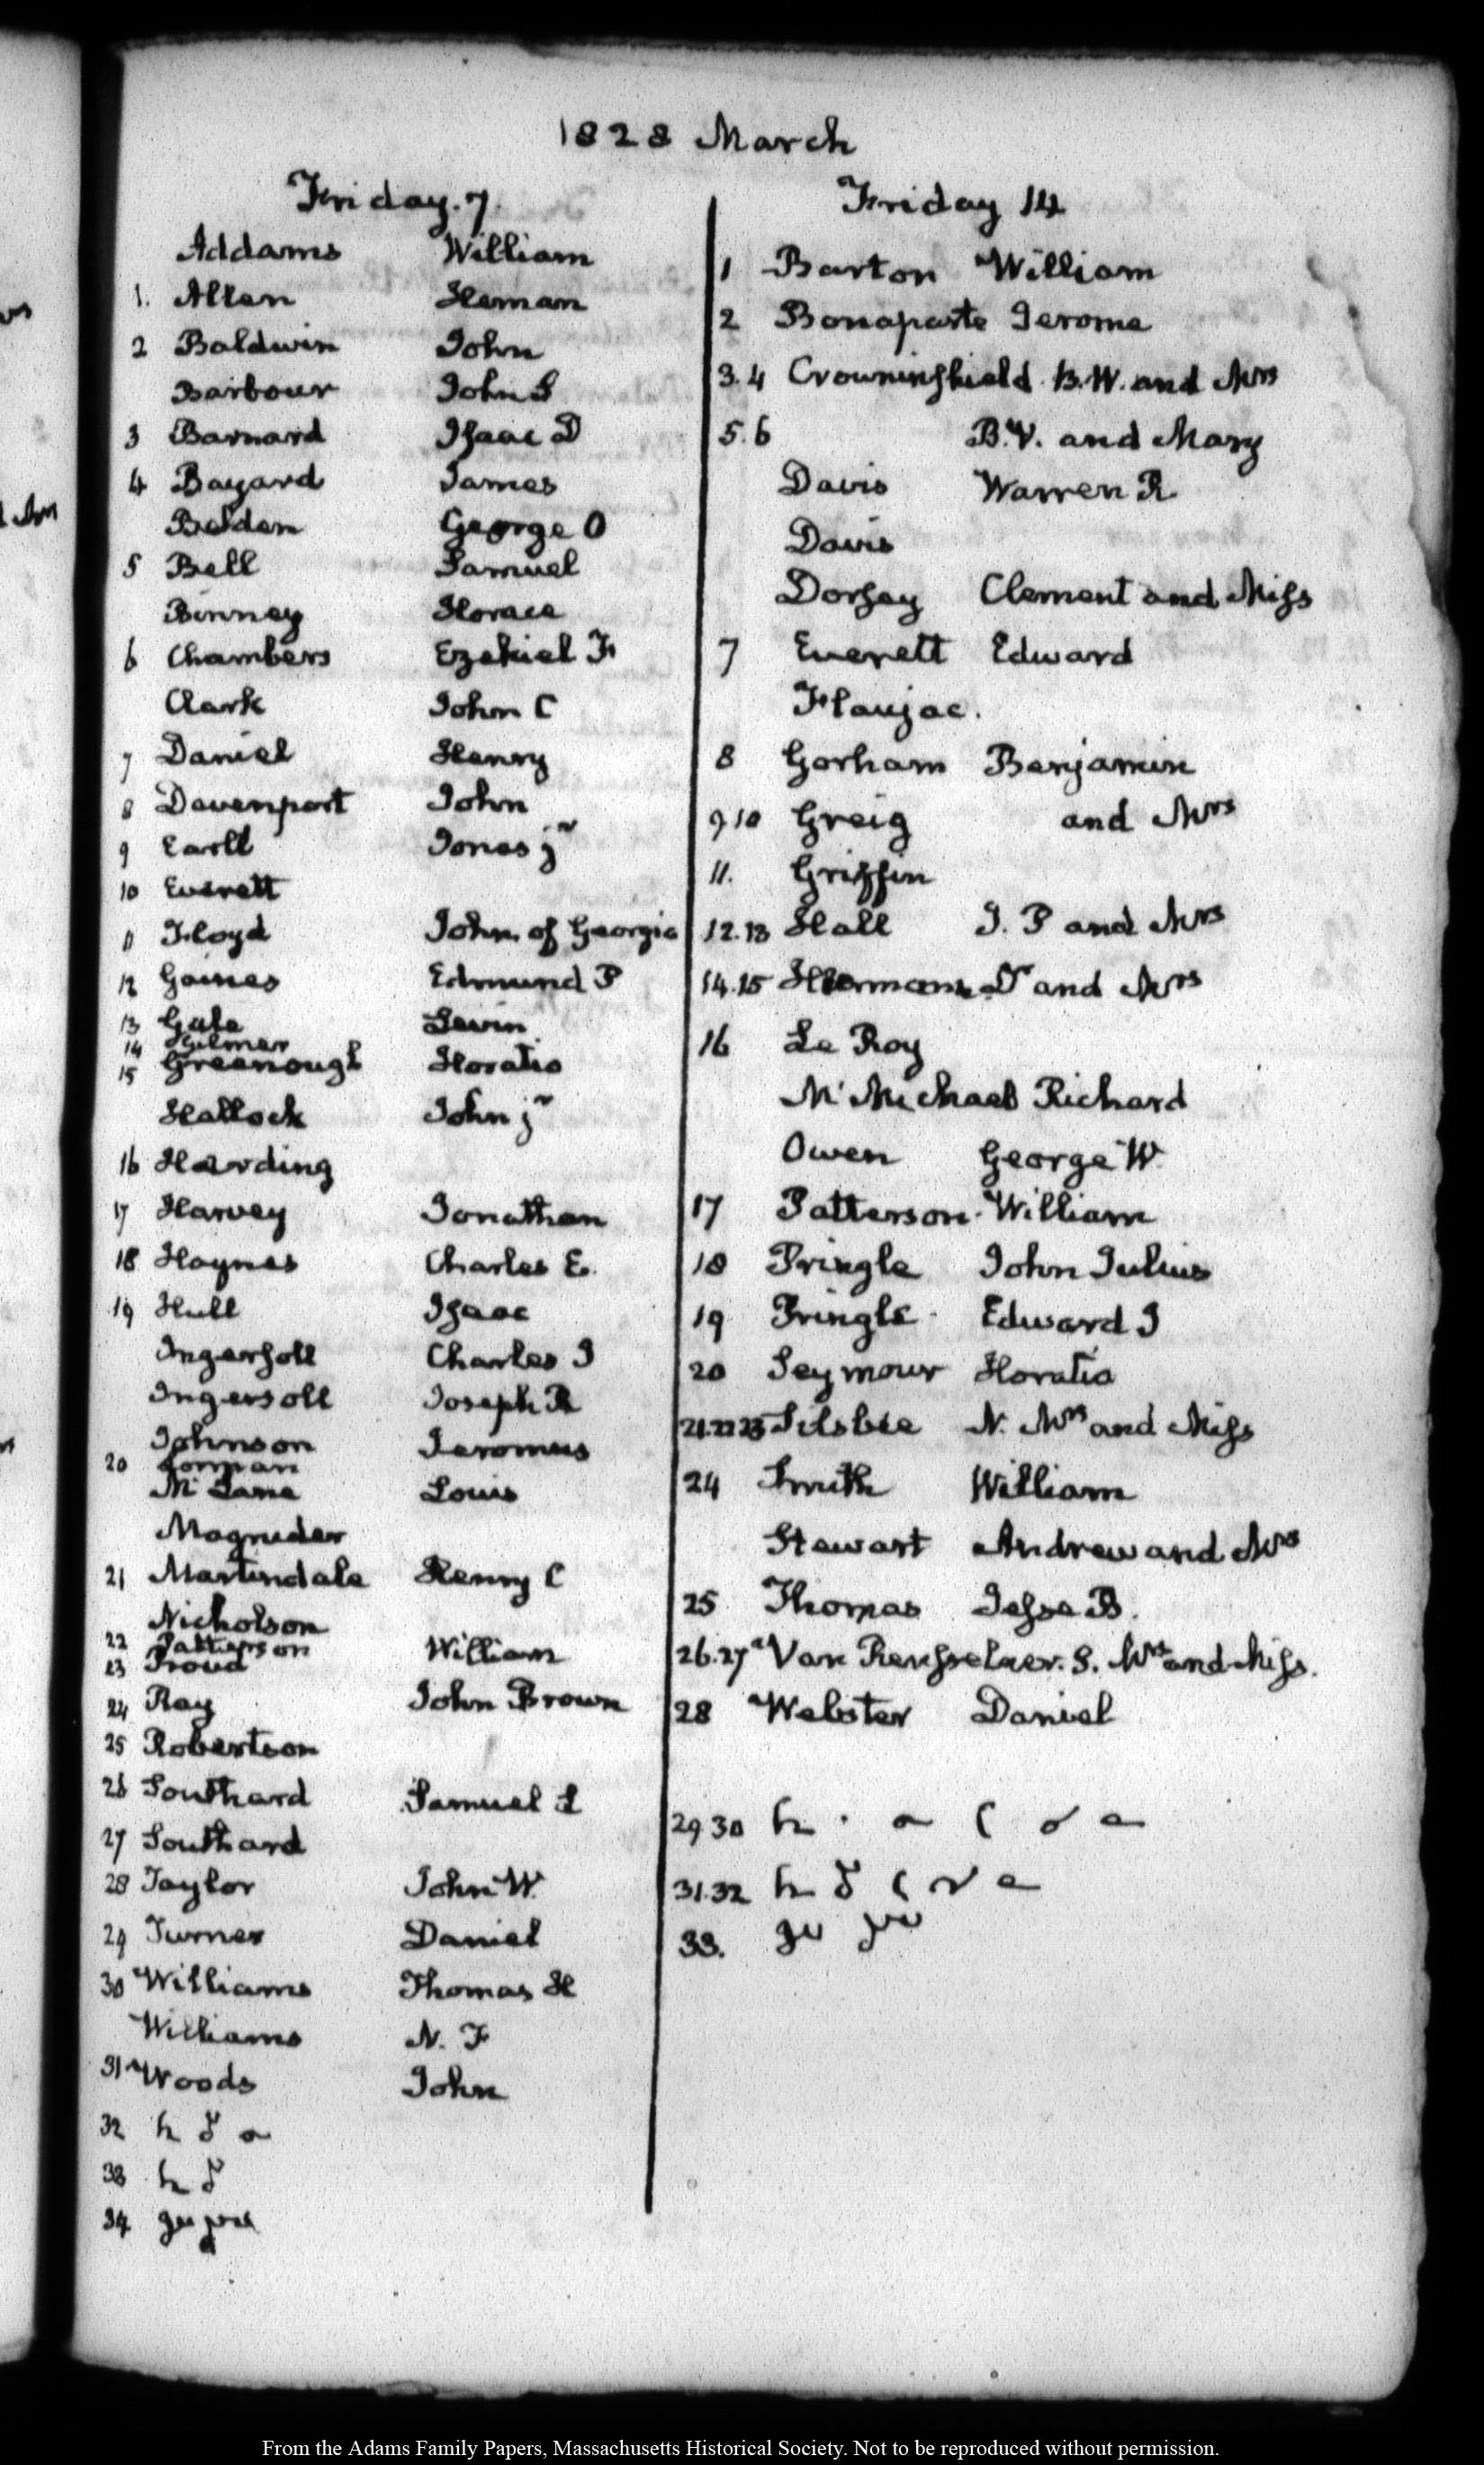 1828 March
Friday. 7.
Addams William
1. Allen Heman
2 Baldwin John
Barbour John S
3 Barnard Isaac D
4 Bayard James
Belden George O
5 Bell Samuel
Binney Horace
6 Chambers Ezekiel F
Clark John C
7 Daniel Henry
8 Davenport John
9 Earll Jonas jr
10 Everett
11 Floyd John of Georgia
12 Gaines Edmund P
13 Gale Levin
14 Gilmer
15 Greenough Horatio
Hallock John jr
16 Harding
17 Harvey Jonathan
18 Haynes Charles E.
19 Hull Isaac
Ingersoll Charles J
Ingersoll Joseph R
Johnson Jeromus
20 Lorman
Mc Lane Louis
Magruder
21 Martindale Henry C
Nicholson
22 Patterson William
23 Proud
24 Ray John Brown
25 Robertson
26 Southard Samuel L
27 Southard
28 Taylor John W.
29 Turner Daniel
30 Williams Thomas H
Williams N. F
31 Woods John
32
33
34
Friday 14
1 Barton William
2 Bonaparte Jerome
3.4 Crowninshield B.W. and Mrs
5.6 B.V. and Mary
Davis Warren R.
Davis
Dorsey Clement and Miss
7 Everett Edward
Flaujac.
8 Gorham Benjamin
9 10 Greig and Mrs
11. Griffin
12.13 Hall J. P and Mrs
14.15 Dr and Mrs
16 Le Roy
Mc Michael Richard
Owen George W.
17 Patterson William
18 Pringle John Julius
19 Pringle Edward J
20 Seymour Horatio
21.22 23 Silsbee N. Mrs and Miss
24 Smith William
Stewart Andrew and Mrs
25 Thomas Jesse B.
26.27 Van Rensselaer. S. Mrs and Miss.
28 Webster Daniel
29 30
31.32
33.
From the Adams Family Papers, Massachusetts Historical Society. Not to be reproduced without permission.